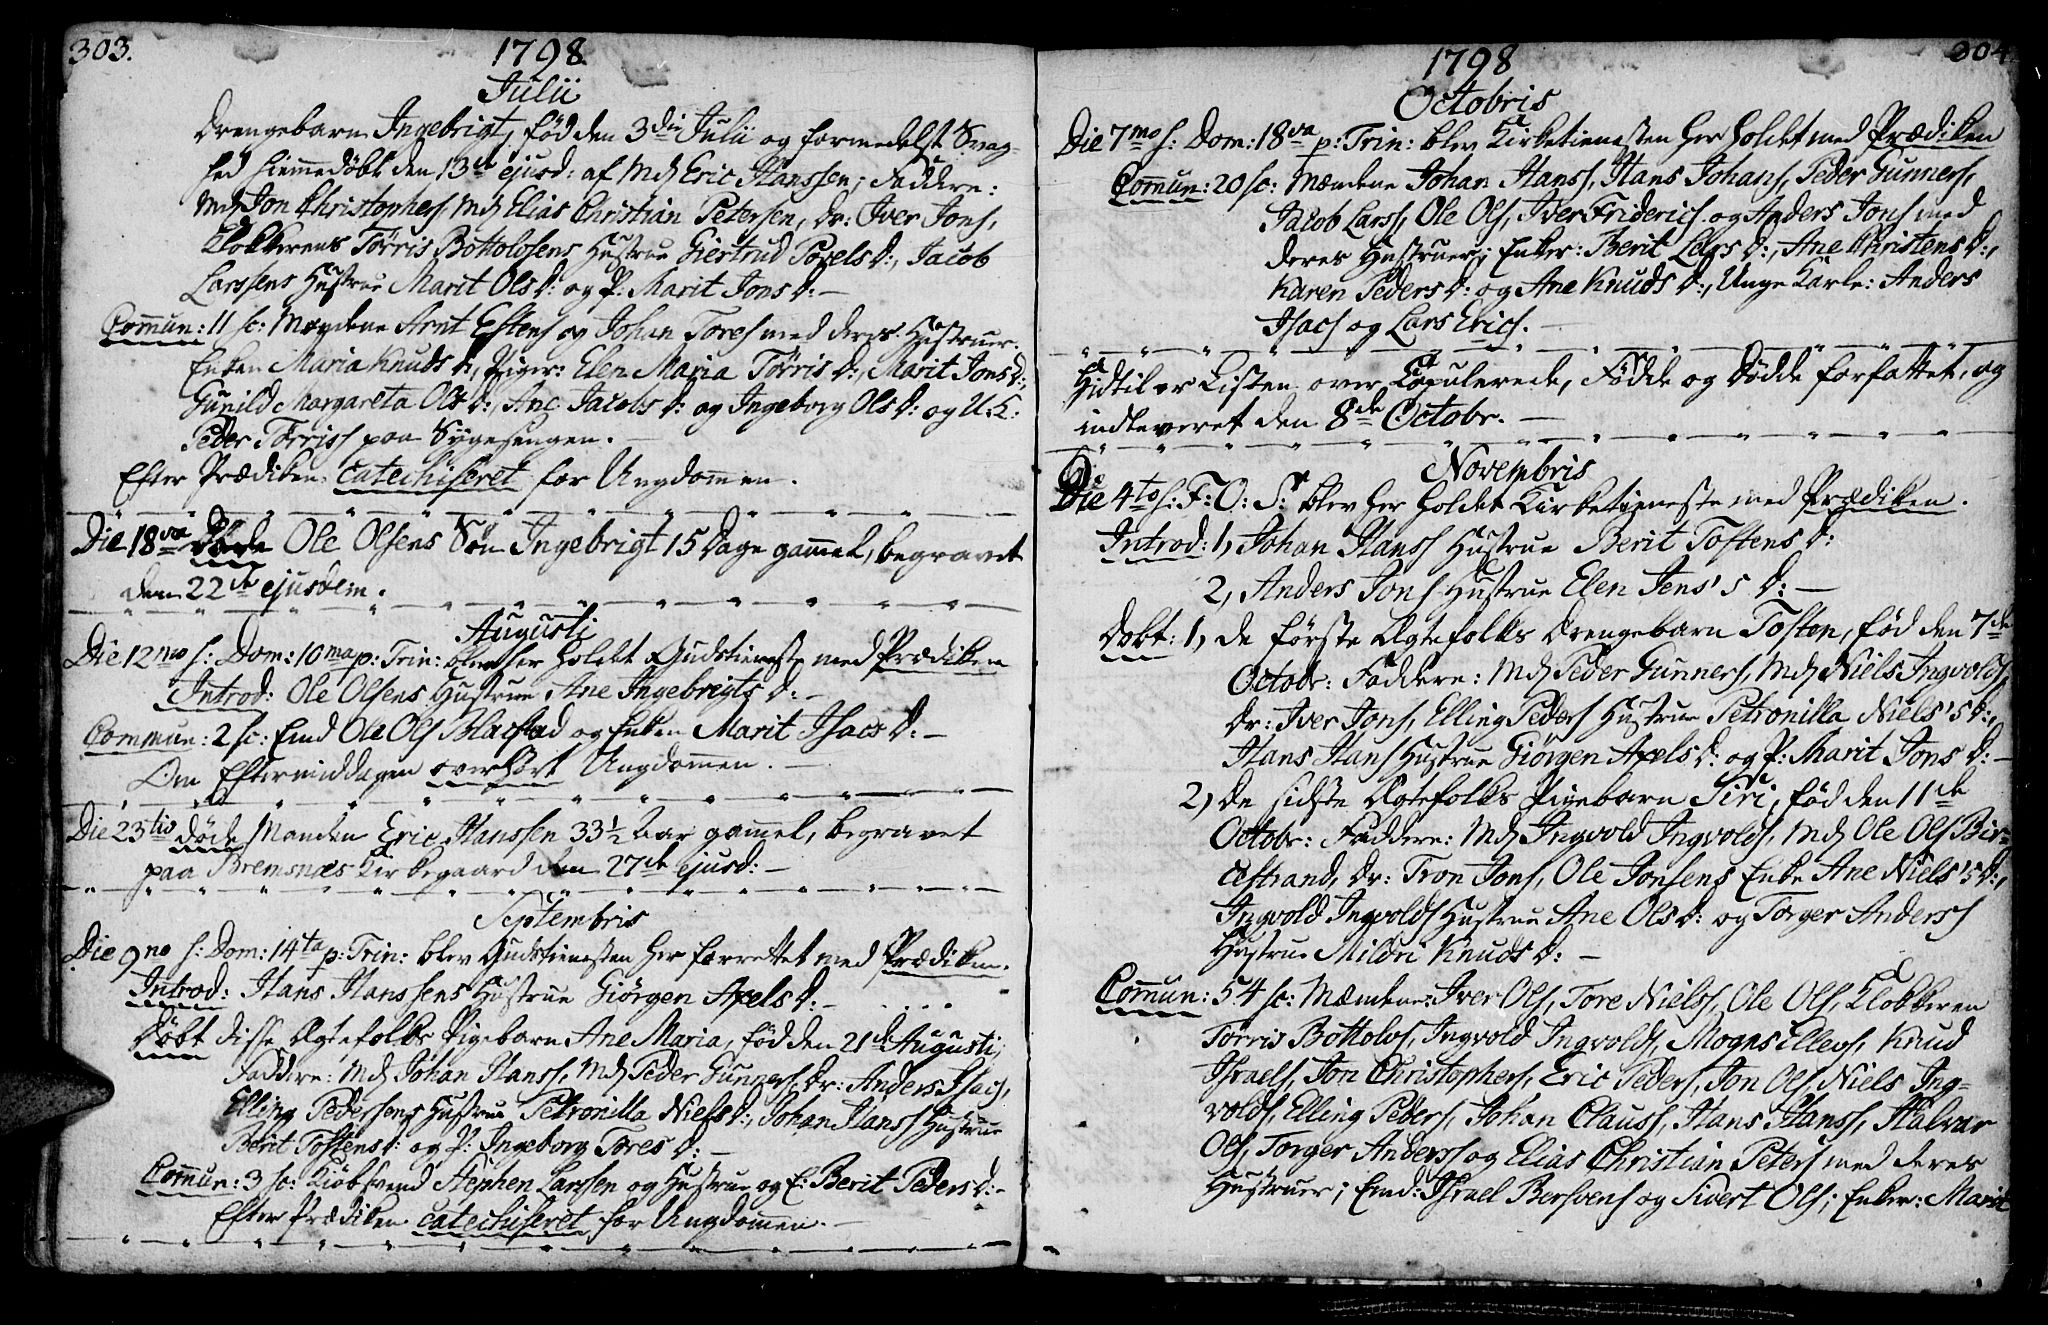 303.
1798.
Julii
Drengebarn Ingebrigt, fød den 3die Julii og formedelst Svag-
hed hiemmedøbt den 13de ejusd: af Md Eric Hanssen; Faddere:
Md Jon Christophers, Md Elias Christian Petersen, Dr: Iver Jons,
Klokkerens Tørris Bottolvsens Hustrue Giertrud Povels D:, Jacob
Larssens Hustrue Marit Ols D: og P. Marit Jons D: —
Commun: 11 sc: Mændene Arnt Estens og Johan Tores med deres Hustruer.
Enken Maria Knuds D:, Piger: Elen Maria Tørris D:, Marit Jons D:,
Gunild Margareta Ols D:, Ane Jacobs D: og Ingeborg Ols D: og U. K:
Peder Tørriss paa Sygesengen. —
Efter Prædiken catechiseret for Ungdommen.
Die 18va døde Ole Olsens Søn Ingebrigt 15 Dage gammel, begravet
den 22de ejusdem.
Augusti
Die 12mo s: Dom: 10ma p: Trin: blev her holdet Gudstieneste med Prædiken
Introd: Ole Olsens Hustrue Ane Ingebrigts D: —
Commun: 2 sc: Emd Ole Ols Blæstad og Enken Marit Isacs D: —
Om Eftermiddagen overhørt Ungdommen. —
Die 23tio døde Manden Eric Hanssen 33½ Aar gammel, begravet
paa Bremsnæs Kirkegaard den 27de ejusd: —
Septembris
Die 9no s: Dom: 14ta p: Trin: blev Gudstienesten her forrettet med Prædiken.
Introd: Hans Hanssens Hustrue Giørgen Axels D: —
Døbt disse Ægtefolks Pigebarn Ane Maria, fød den 21de Augusti,
Faddere: Md Johan Hanss, Md Peder Gunners, Dr: Anders Isacs,
Elling Pedersens Hustrue Petronilla Niels D:, Johan Hanss Hustrue
Berit Tostens D: og P. Ingeborg Tores D: —
Commun: 3 sc: Kiøbsvend Stephen Larssen og Hustrue og E: Berit Peders D: —
Efter Prædiken catechiseret for Ungdommen. —
304
1798
Octobris
Die 7mo s: Dom: 18va p: Trin: blev Kirketienesten her holdet med Prædiken
Commun: 20 sc: Mændene Johan Hanss, Hans Johans, Peder Gunners,
Jacob Larss, Ole Ols, Iver Friderics og Anders Jons med
deres Hustruer; Enker: Berit Lars D:, Ane Christens D:,
Karen Peders D: og Ane Knuds D:, Unge Karle: Anders
Isacs og Lars Erics. —
Hidtil er Listen over Copulerede, Fødde og Døde forfattet, og
indleveret den 8de Octobr. —
Novembris
Die 4to s: F: O: S: blev her holdet Kirketieneste med Prædiken.
Introd: 1, Johan Hanss Hustrue Berit Tostens D:
2, Anders Jons Hustrue Elen Jens's D: —
Døbt: 1, de første Ægtefolks Drengebarn Tosten, fød den 7de
Octobr: Faddere: Md Peder Gunners, Md Niels Ingvolds,
Dr: Iver Jons, Elling Peders Hustrue Petronilla Niels's D:,
Hans Hans Hustrue Giørgen Axels D: og P: Marit Jons D: —
2, de sidste Ægtefolks Pigebarn Siri, fød den 11de
Octobr: Faddere: Md Ingvold Ingvolds, Md Ole Ols Bir-
kestrand, Dr: Tron Jons, Ole Jonsens Enke Ane Niels's D:,
Ingvold Ingvolds Hustrue Ane Ols D: og Torger Anderss
Hustrue Mildri Knuds D: —
Commun: 54 sc: Mændene: Iver Ols, Tore Nielss, Ole Ols, Klokkeren
Tørris Bottolvs, Ingvold Ingvolds, Mogns Ellevs, Knud
Israels, Jon Christophers, Eric Peders, Jon Ols, Niels Ing-
volds, Elling Peders, Johan Clauss, Hans Hanss, Halvar
Ols, Torger Anderss og Elias Christian Peters med deres
Hustruer; Emd: Israel Bersvens og Sivert Ols; Enker: Marit